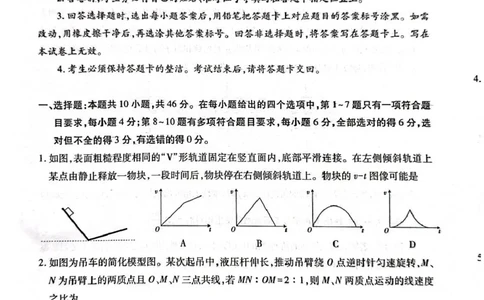 3.回答选择题时,选出每小题答案后,用铅笔把答题卡上对应题目的答案标号涂黑。如需
改动,用橡皮擦干净后,再选涂其他答案标号。回答非选择题时,将答案写在答题卡上。写在
本试卷上无效。
4.考生必须保持答题卡的整洁。考试结束后,请将答题卡交回。
一、选择题:本题共10小题,共46分。在每小题给出的四个选项中,第1~7题只有一项符合题
目要求,每小题4分;第8~10题有多项符合题目要求,每小题6分,全部选对的得6分,选
对但不全的得3分,有选错的得0分。
4.
1.如图,表面粗糙程度相同的“V”形轨道固定在竖直面内,底部平滑连接。在左侧倾斜轨道上
某点由静止释放一物块,一段时间后,物块停在右侧倾斜轨道上。物块的v-t图像可能是
v v v v
O t O t O t O t
A B C D
2.如图为吊车的简化模型图。某次起吊中,液压杆伸长,推动吊臂绕O点逆时针匀速旋转,M、
N为吊臂上的两质点且O、M、N三点共线,若MN:OM=2:1,则M、N两质点运动的线速度
之比为
5